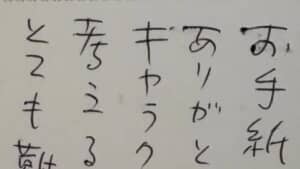 お手紙
ありがと
ギャラク
考える
とても